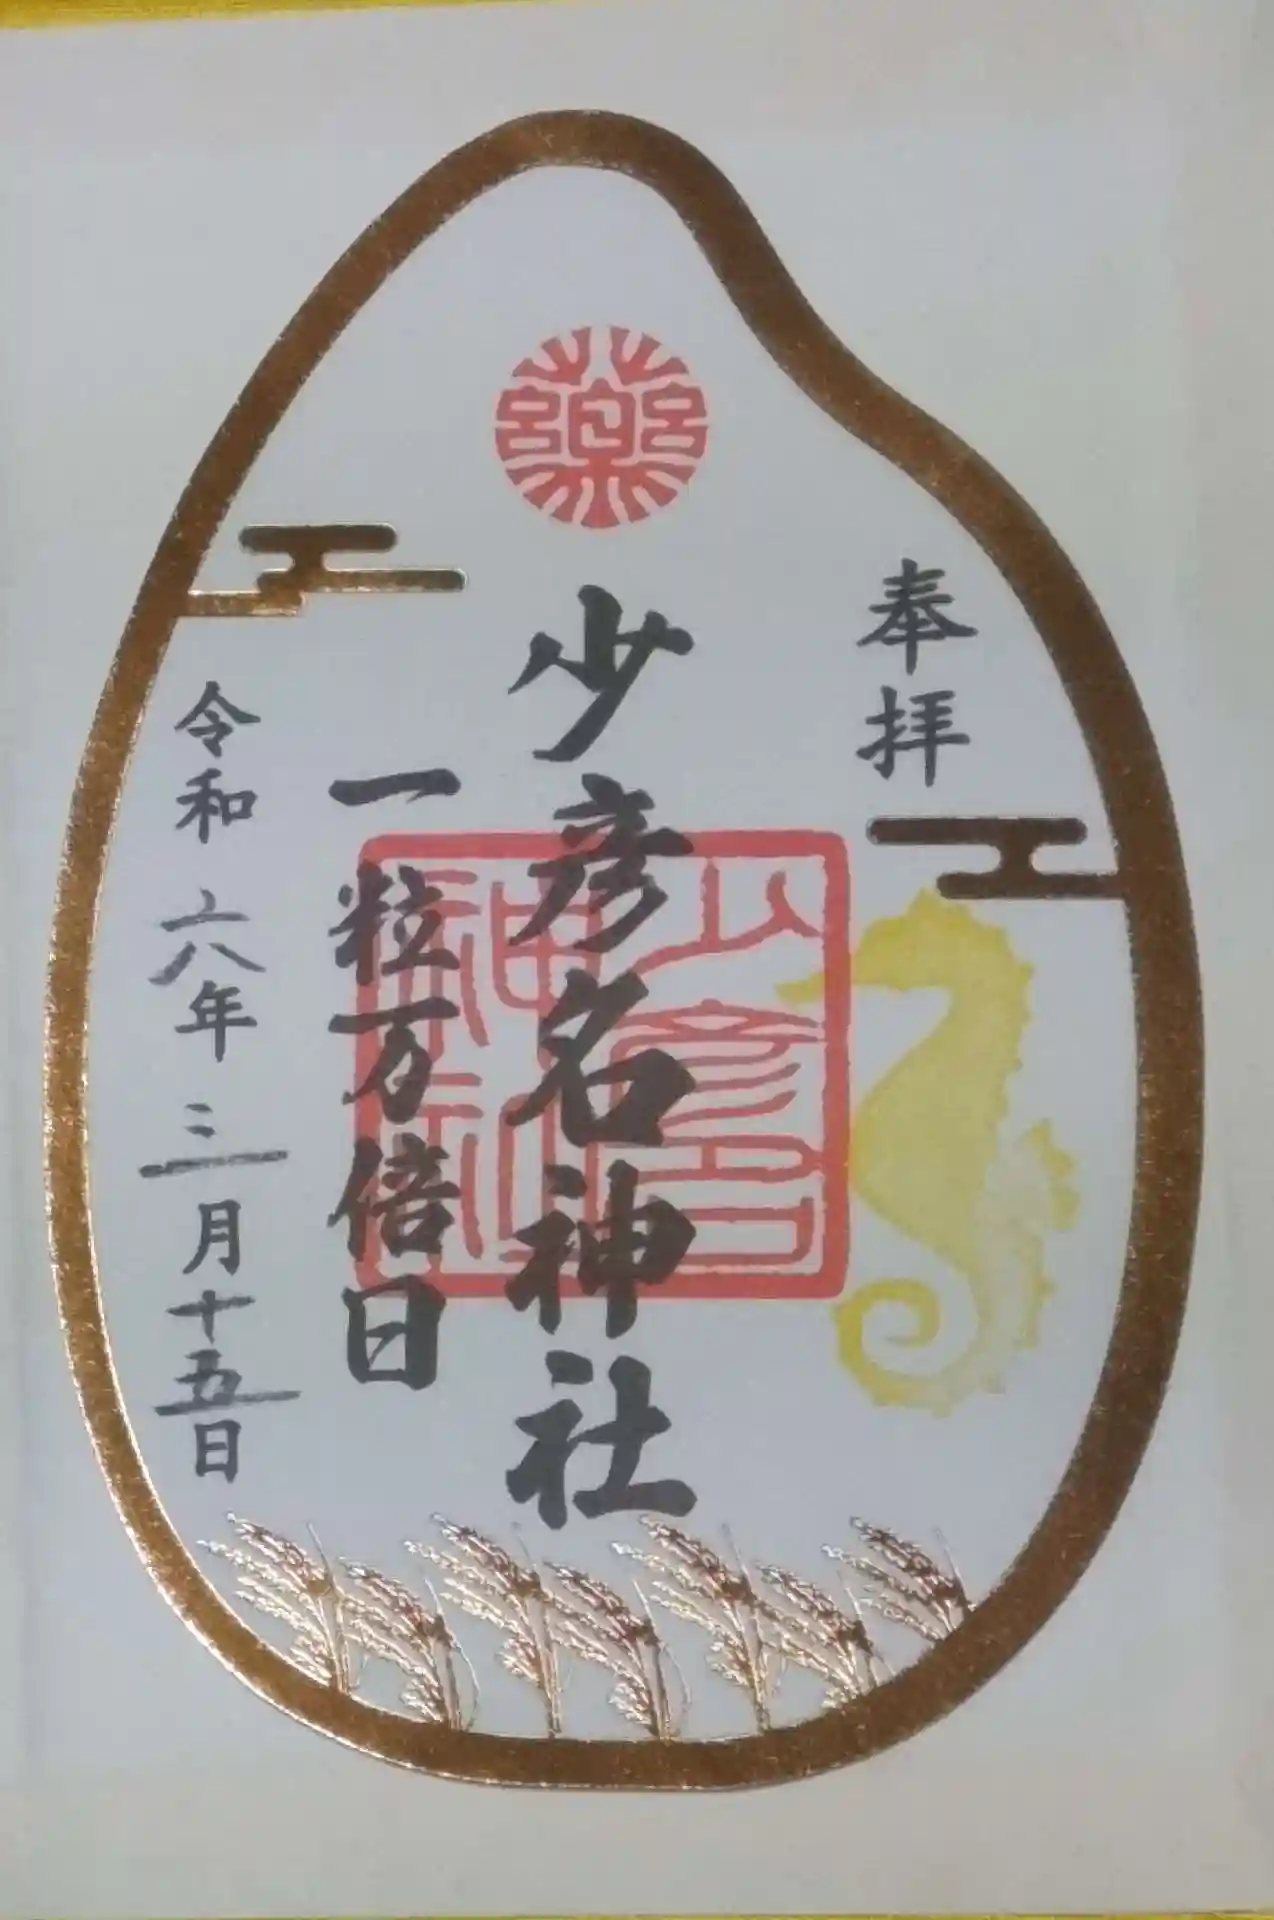 奉拝
薬
少彦名神社
少彦名
神社
一粒万倍日
令和六年三月十五日